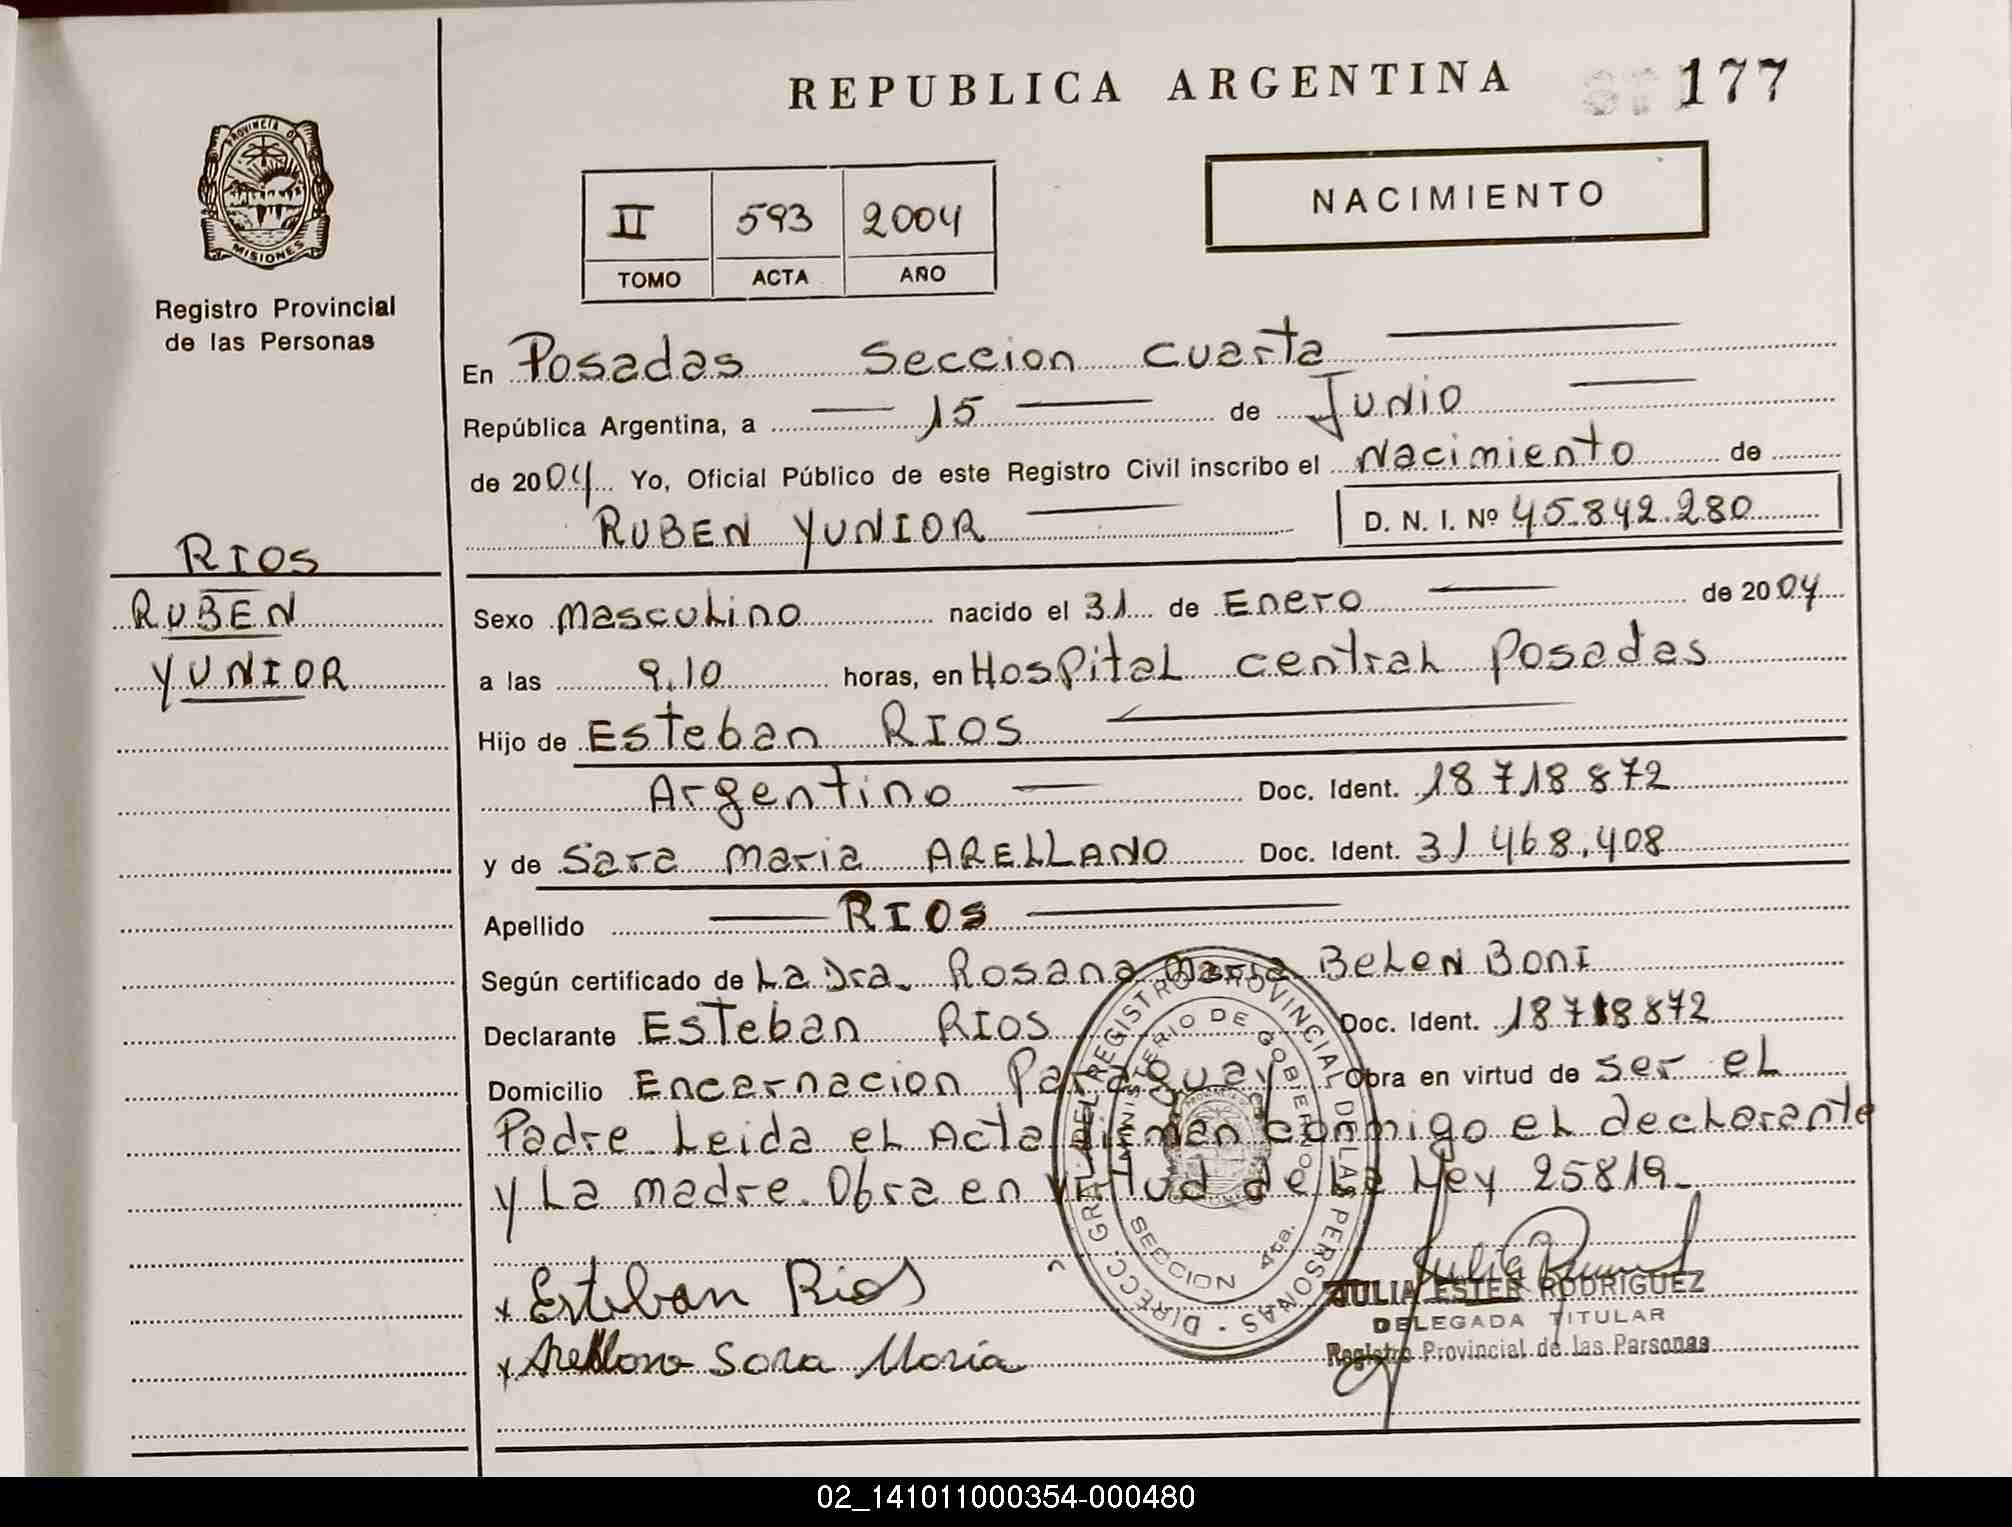 REPUBLICA ARGENTINA
177
PROVINCIA DE
MISIONES
Registro Provincial
de las Personas
NACIMIENTO
II 593 2004
TOMO ACTA AÑO
En Posadas Seccion cuarta
República Argentina, a 15 de Junio
de 2004 Yo, Oficial Público de este Registro Civil inscribo el Nacimiento de
RUBEN YUNIOR D. N. I. Nº 45.842.280
RIOS
RUBEN
YUNIOR
Sexo Masculino nacido el 31 de Enero de 2004
a las 9.10 horas, en Hospital central Posadas
Hijo de Esteban RIOS
Argentino Doc. Ident. 18 718 872
y de Sara Maria ARELLANO Doc. Ident. 31 468.408
Apellido RIOS
Según certificado de La Dra. Rosana Maria Belen Boni
Declarante Esteban RIOS Doc. Ident. 18718872
Domicilio Encarnacion Paraguay Obra en virtud de ser el
Padre Leida el Acta firman conmigo el declarante
y La madre. Obra en virtud de La Ley 25819.
DIRECC. GRAL. DEL REGISTRO PROVINCIAL DE LAS PERSONAS
MINISTERIO DE GOBIERNO
SECCION 4ta.
Esteban Rios
Arellano Sara Maria
JULIA ESTER RODRIGUEZ
DELEGADA TITULAR
Registro Provincial de las Personas
02_141011000354-000480